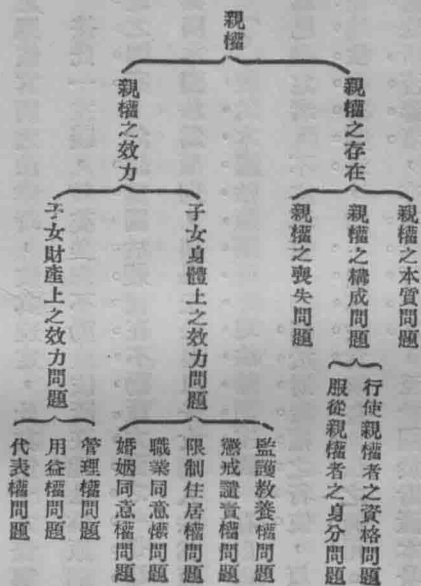 親權
親權之存在
親權之本質問題
親權之構成問題
行使親權者之資格問題
服從親權者之身分問題
親權之喪失問題
親權之效力
子女身體上之效力問題
監護教養權問題
懲戒譴責權問題
限制住居權問題
職業同意權問題
婚姻同意權問題
子女財產上之效力問題
管理權問題
用益權問題
代表權問題